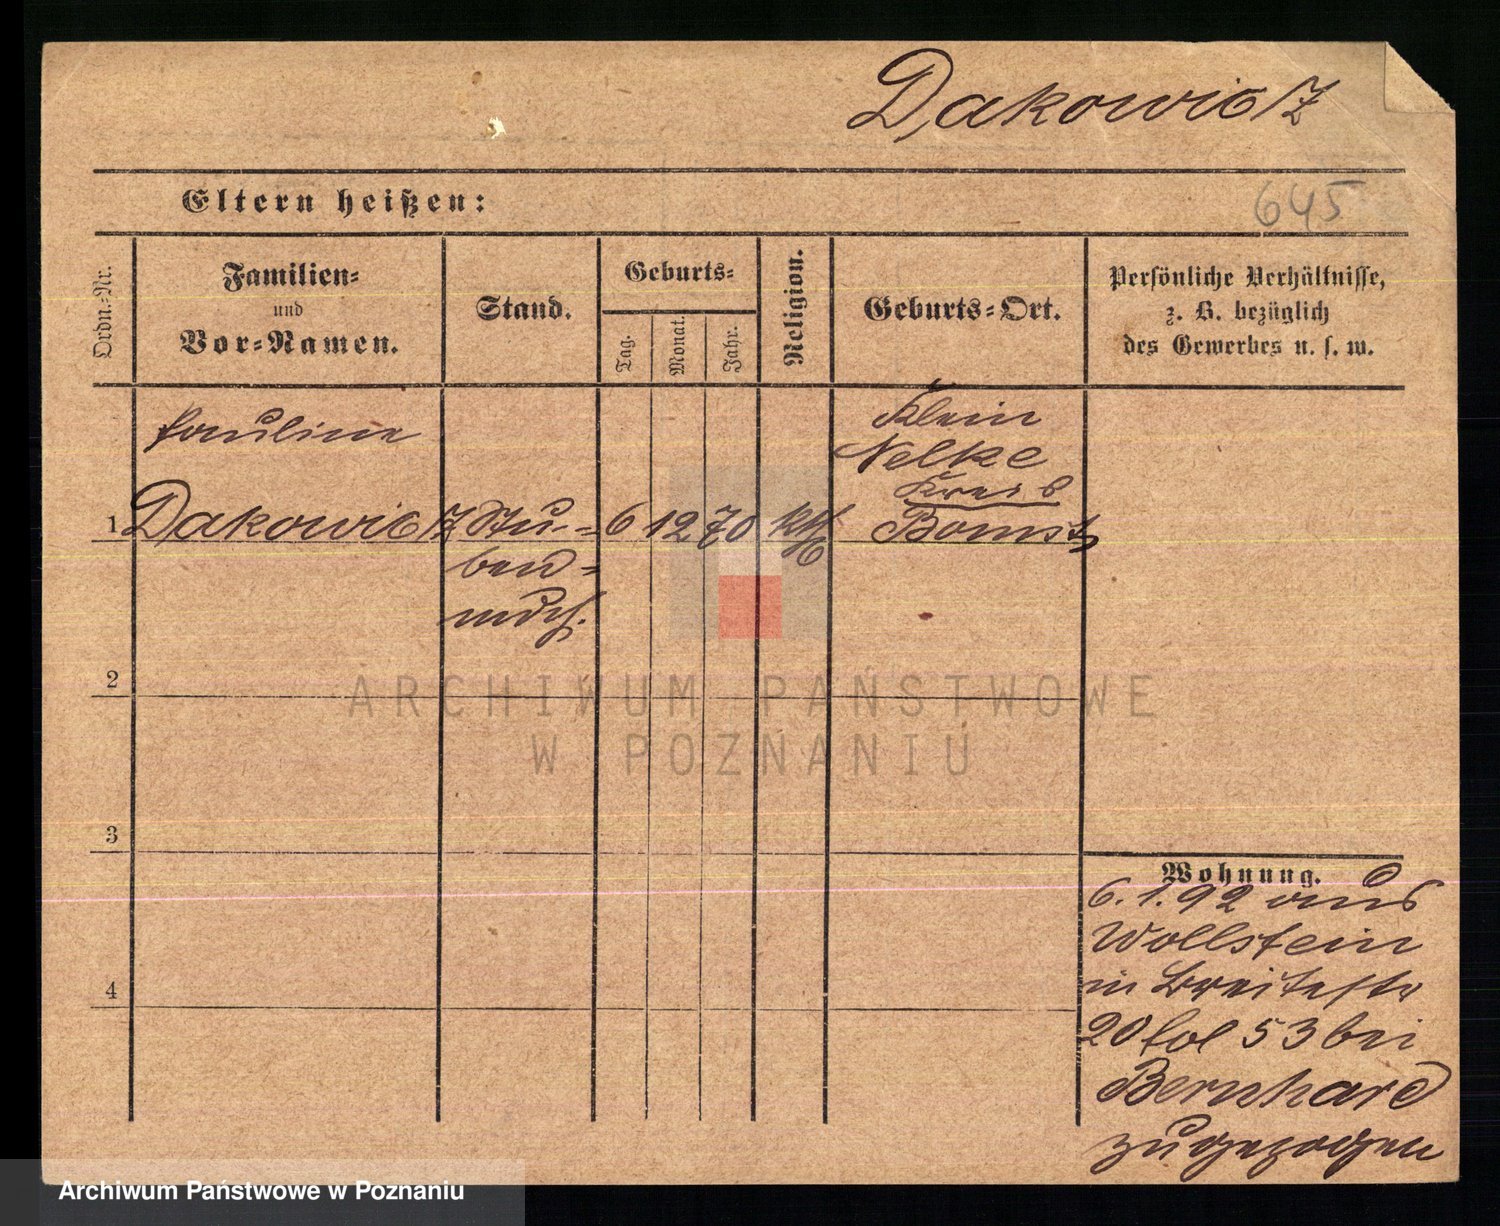 Dakowicz
645
Eltern heißen:
Ordn.-Nr.
Familien-
und
Vor-Namen.
Stand.
Geburts-
Tag.
Monat.
Jahr.
Religion.
Geburts-Ort.
Persönliche Verhältnisse,
z. B. bezüglich
des Gewerbes u. s. w.
Pauline
1 Dakowicz
Stu-
ben-
mdch.
6 12 70 kth
Klein
Nelke
Kreis
Bomst
2
3
4
Wohnung.
6. 1. 92 aus
Wollstein
in Breitestr
20 fol 53 bei
Bernhard
zugezogen
ARCHIWUM PAŃSTWOWE
W POZNANIU
Archiwum Państwowe w Poznaniu